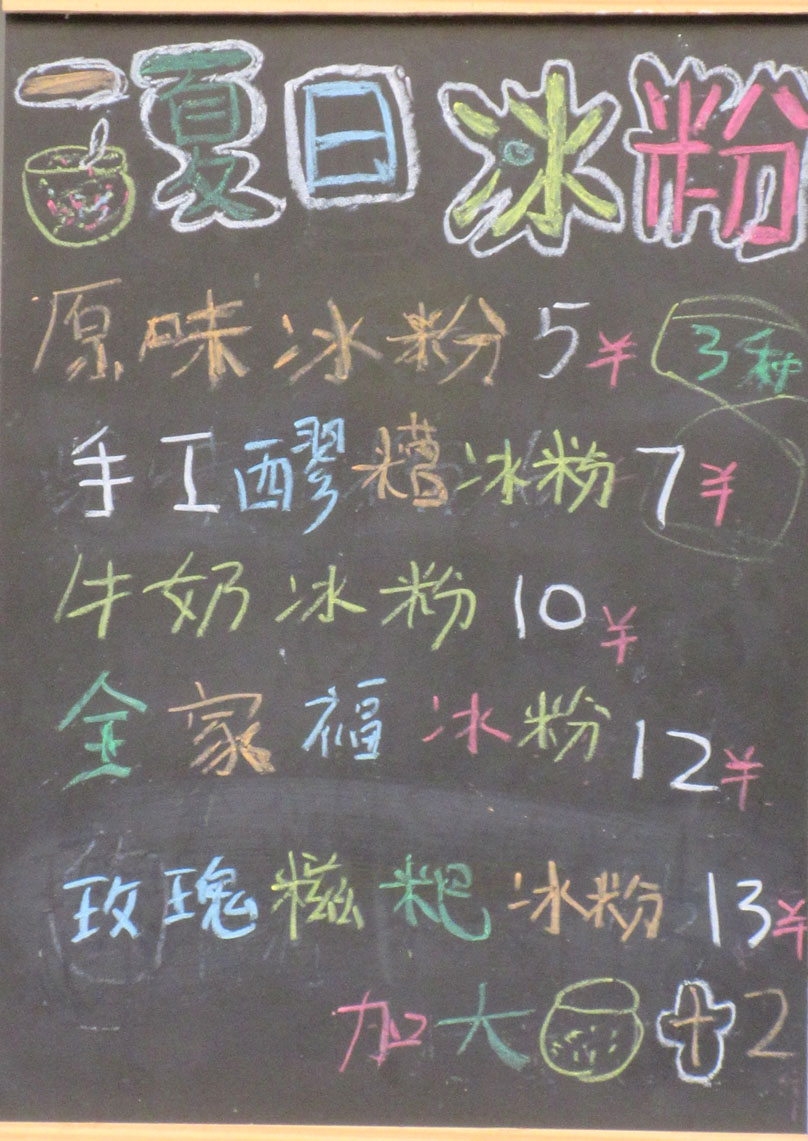 一夏日冰粉
原味冰粉 5¥ 3种
手工醪糟冰粉 7¥
牛奶冰粉 10¥
全家福冰粉 12¥
玫瑰糍粑冰粉 13¥
加大 +2